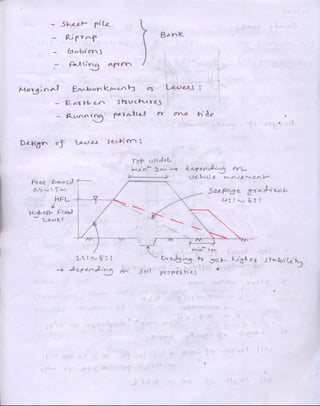 - Sheet pile
- Riprap
- Gabions
- Falling apron
Bank
Marginal Embankments or Levees :
- Earthen structures
- Running parallel or one side
Design of Levee section :
Top width
min^m 3m → depending on
vehicle movement
Free Board
0.5~1.5m
HFL
Highest Flood
Level
Seepage gradient
4:1 ~ 6:1
min^m 1m
Dredging to get higher stability
→ depending on soil properties